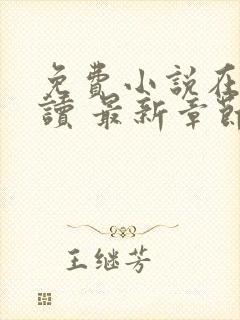 免費小説在
讀 最新章節
王继芳